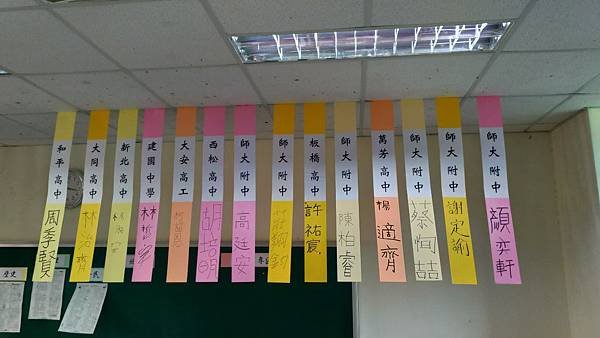 和平高中
周季賢
大同高中
林治齊
新北高中
建國中學
林哲
大安高工
西松高中
胡培明
師大附中
高廷安
師大附中
莊鎔釗
板橋高中
許祐宸
師大附中
陳柏睿
萬芳高中
楊適齊
師大附中
蔡恂喆
師大附中
謝定諭
師大附中
顏奕軒
歷史
公民